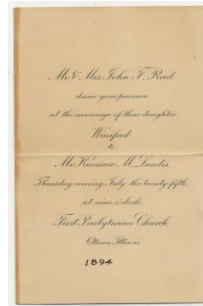 Mr. & Mrs. John F. Reed
desire your presence
at the marriage of their daughter
Winifred
to
Mr. Kenesaw M. Landis,
Thursday evening, July the twenty fifth,
at nine o'clock,
First Presbyterian Church,
Ottawa, Illinois.
1894